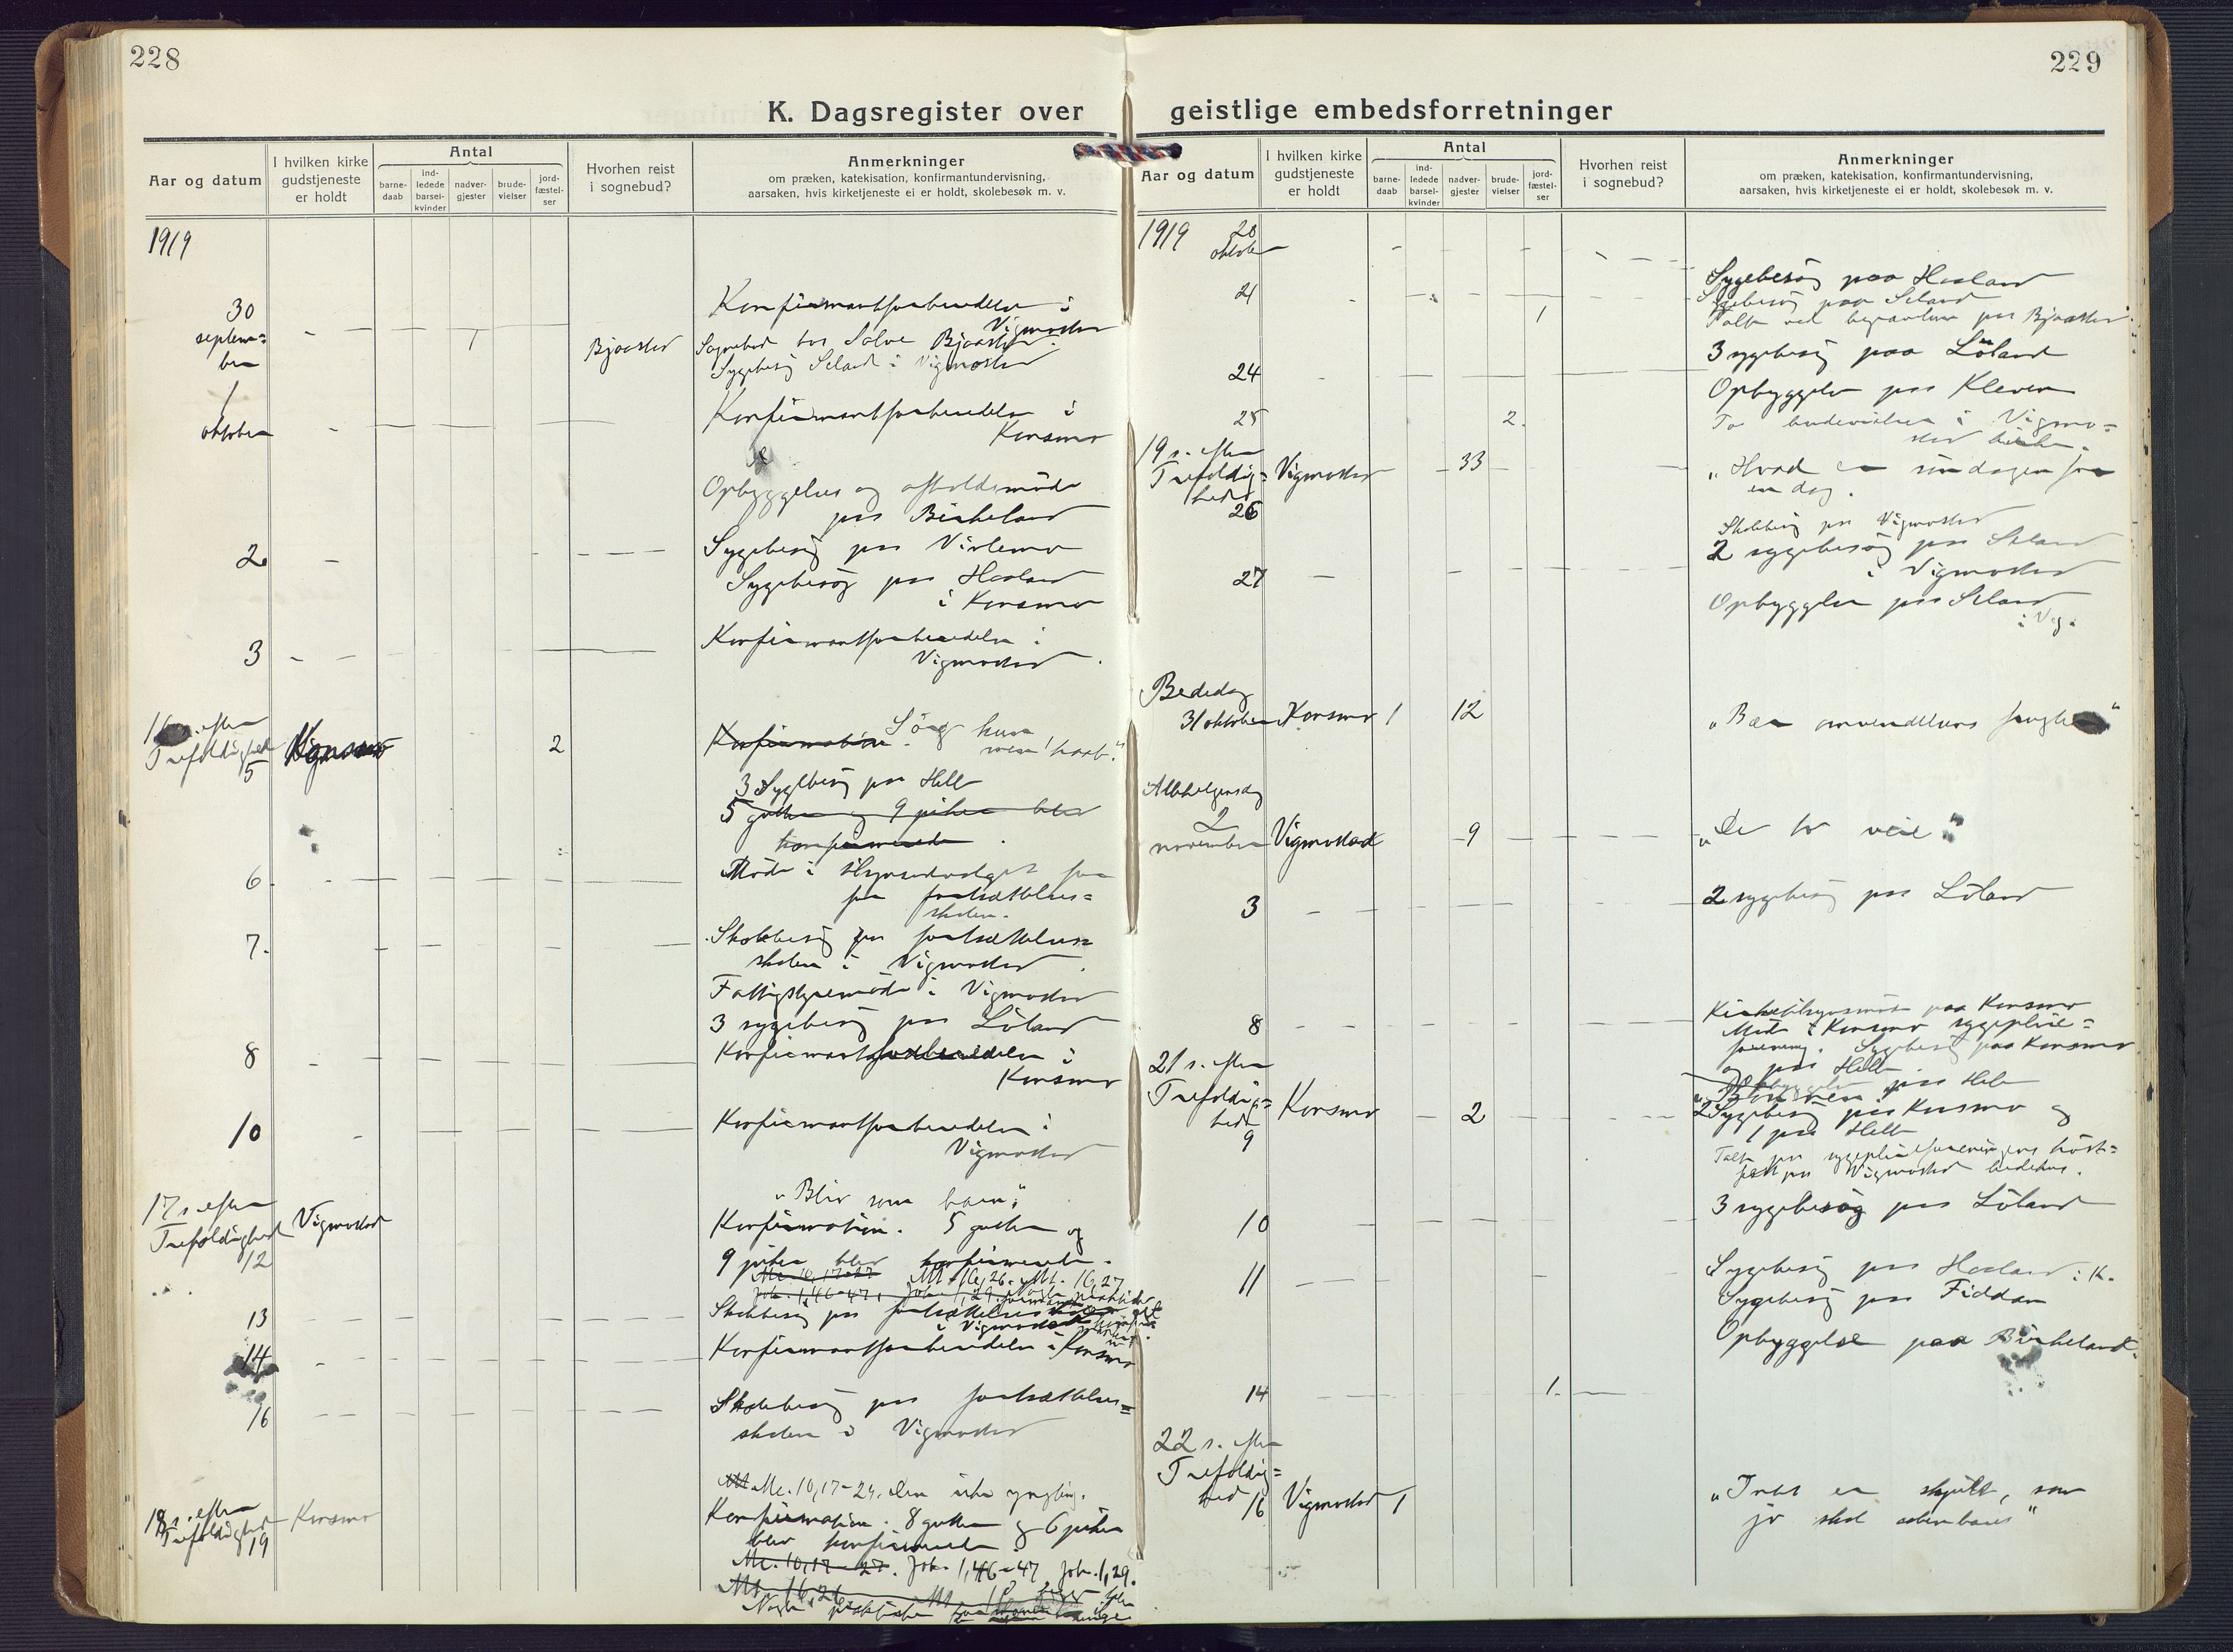 228
K. Dagsregister over
Aar og datum
I hvilken kirke
gudstjeneste
er holdt
Antal
barne-
daab
ind-
ledede
barsel-
kvinder
nadver-
gjester
brude-
vielser
jord-
fæstel-
ser
Hvorhen reist
i sognebud?
Anmerkninger
om præken, katekisation, konfirmantundervisning,
aarsaken, hvis kirketjeneste ei er holdt, skolebesøk m. v.
1919
30
septem=
ber
1
Bjaastad
Konfirmantforberedelse i
Vigmostad
Sognebud hos Salve Bjaastad.
Sygebesøg Seland i Vigmostad
1
oktober
Konfirmantforberedelse i
Konsmo
Opbyggelse og afholdsmöde
paa Birkeland
2.
Sygebesög paa Virlemo
Sygebesög paa Hosland
i Konsmo
3
Konfirmantforberedelse i
Vigmostad.
16 s. efter
Trefoldighed
5
Konsmo
2
Konfirmation. Sörg kun
men haab."
3 Sygebesög paa Helle
5 gutter og 9 piker blev
konfirmerede.
6.
Möde i tilsynsudvalget for
for fortsættelses=
skolen.
7.
Skolebesög paa fortsættelses=
skolen i Vigmostad.
Fattigstyremöde i Vigmostad
3 sygebesög paa Löland
8
Konfirmantforberedelse i
Konsmo
10
Konfirmantforberedelse i
Vigmostad
17 s. efter
Trefoldighed
12
Vigmostad
„Bliv som barn."
Konfirmation. 5 gutter og
9 piker blev konfirmerede.
Mc. 10, 17-27 Mt. 16, 26. Mt. 16, 27
Joh. 1, 46-47. Joh. 1, 29.
13
Skolebesög paa fortsættelses
i Vigmostad
14
Konfirmantforberedelse i Konsmo
16
Skolebesög paa fortsættelses=
skolen i Vigmostad
18 s. efter
Trefoldighed
19
Konsmo
Mc. 10, 17-27. Den rike yngling.
Konfirmation. 8 gutter og 6 piker
blev konfirmerede.
Mc. 10, 17-27. Joh. 1, 46-47, Joh. 1, 29.
Mt. 16, 26.
Nogle praktiske
229
geistlige embedsforretninger
Aar og datum
I hvilken kirke
gudstjeneste
er holdt
Antal
barne-
daab
ind-
ledede
barsel-
kvinder
nadver-
gjester
brude-
vielser
jord-
fæstel-
ser
Hvorhen reist
i sognebud?
Anmerkninger
om præken, katekisation, konfirmantundervisning,
aarsaken, hvis kirketjeneste ei er holdt, skolebesøk m. v.
1919 20
oktober
Sygebesög paa Hosland
21
1
Sygebesög paa Seland
Talte ved begravelse paa Bjaastad.
3 sygebesög paa Löland
24
Opbyggelse paa Kleven
25
2.
To brudevielser i Vigmo=
stad kirke.
19 s. efter
Trefoldig=
hed
26
Vigmostad
33
„Hvad er söndagen for
en dag.
27
Skolebesög paa Vigmostad
2 sygebesög paa Seland
i Vigmostad
Opbyggelse paa Seland
i Vig.
Bededag
31 oktober
Konsmo
1
12
„Bær omvendelsens frugter"
Allehelgensdag
2
november
Vigmostad
9
„De to veie"
3
2 sygebesög paa Löland
8
Kirketilsynsmöte paa Konsmo
Möde i Konsmo sygepleie=
forening. Sygebesög paa Konsmo
og paa Helle
Opbyggelse paa Helle
21 s. efter
Trefoldig=
hed
9
Konsmo
2
2 Sygebesög paa Konsmo og
1 paa Helle
Talte paa sygepleieforeningens höst=
fest paa Vigmostad bedehus.
10
3 sygebesög paa Löland
11
Sygebesög paa Hosland i K.
Sygebesög paa Fiddan
Opbyggelse paa Birkeland.
14
1.
22 s. efter
Trefoldig=
hed
16
Vigmostad
1
„Intet er skjult, som
jo skal aabenbares"